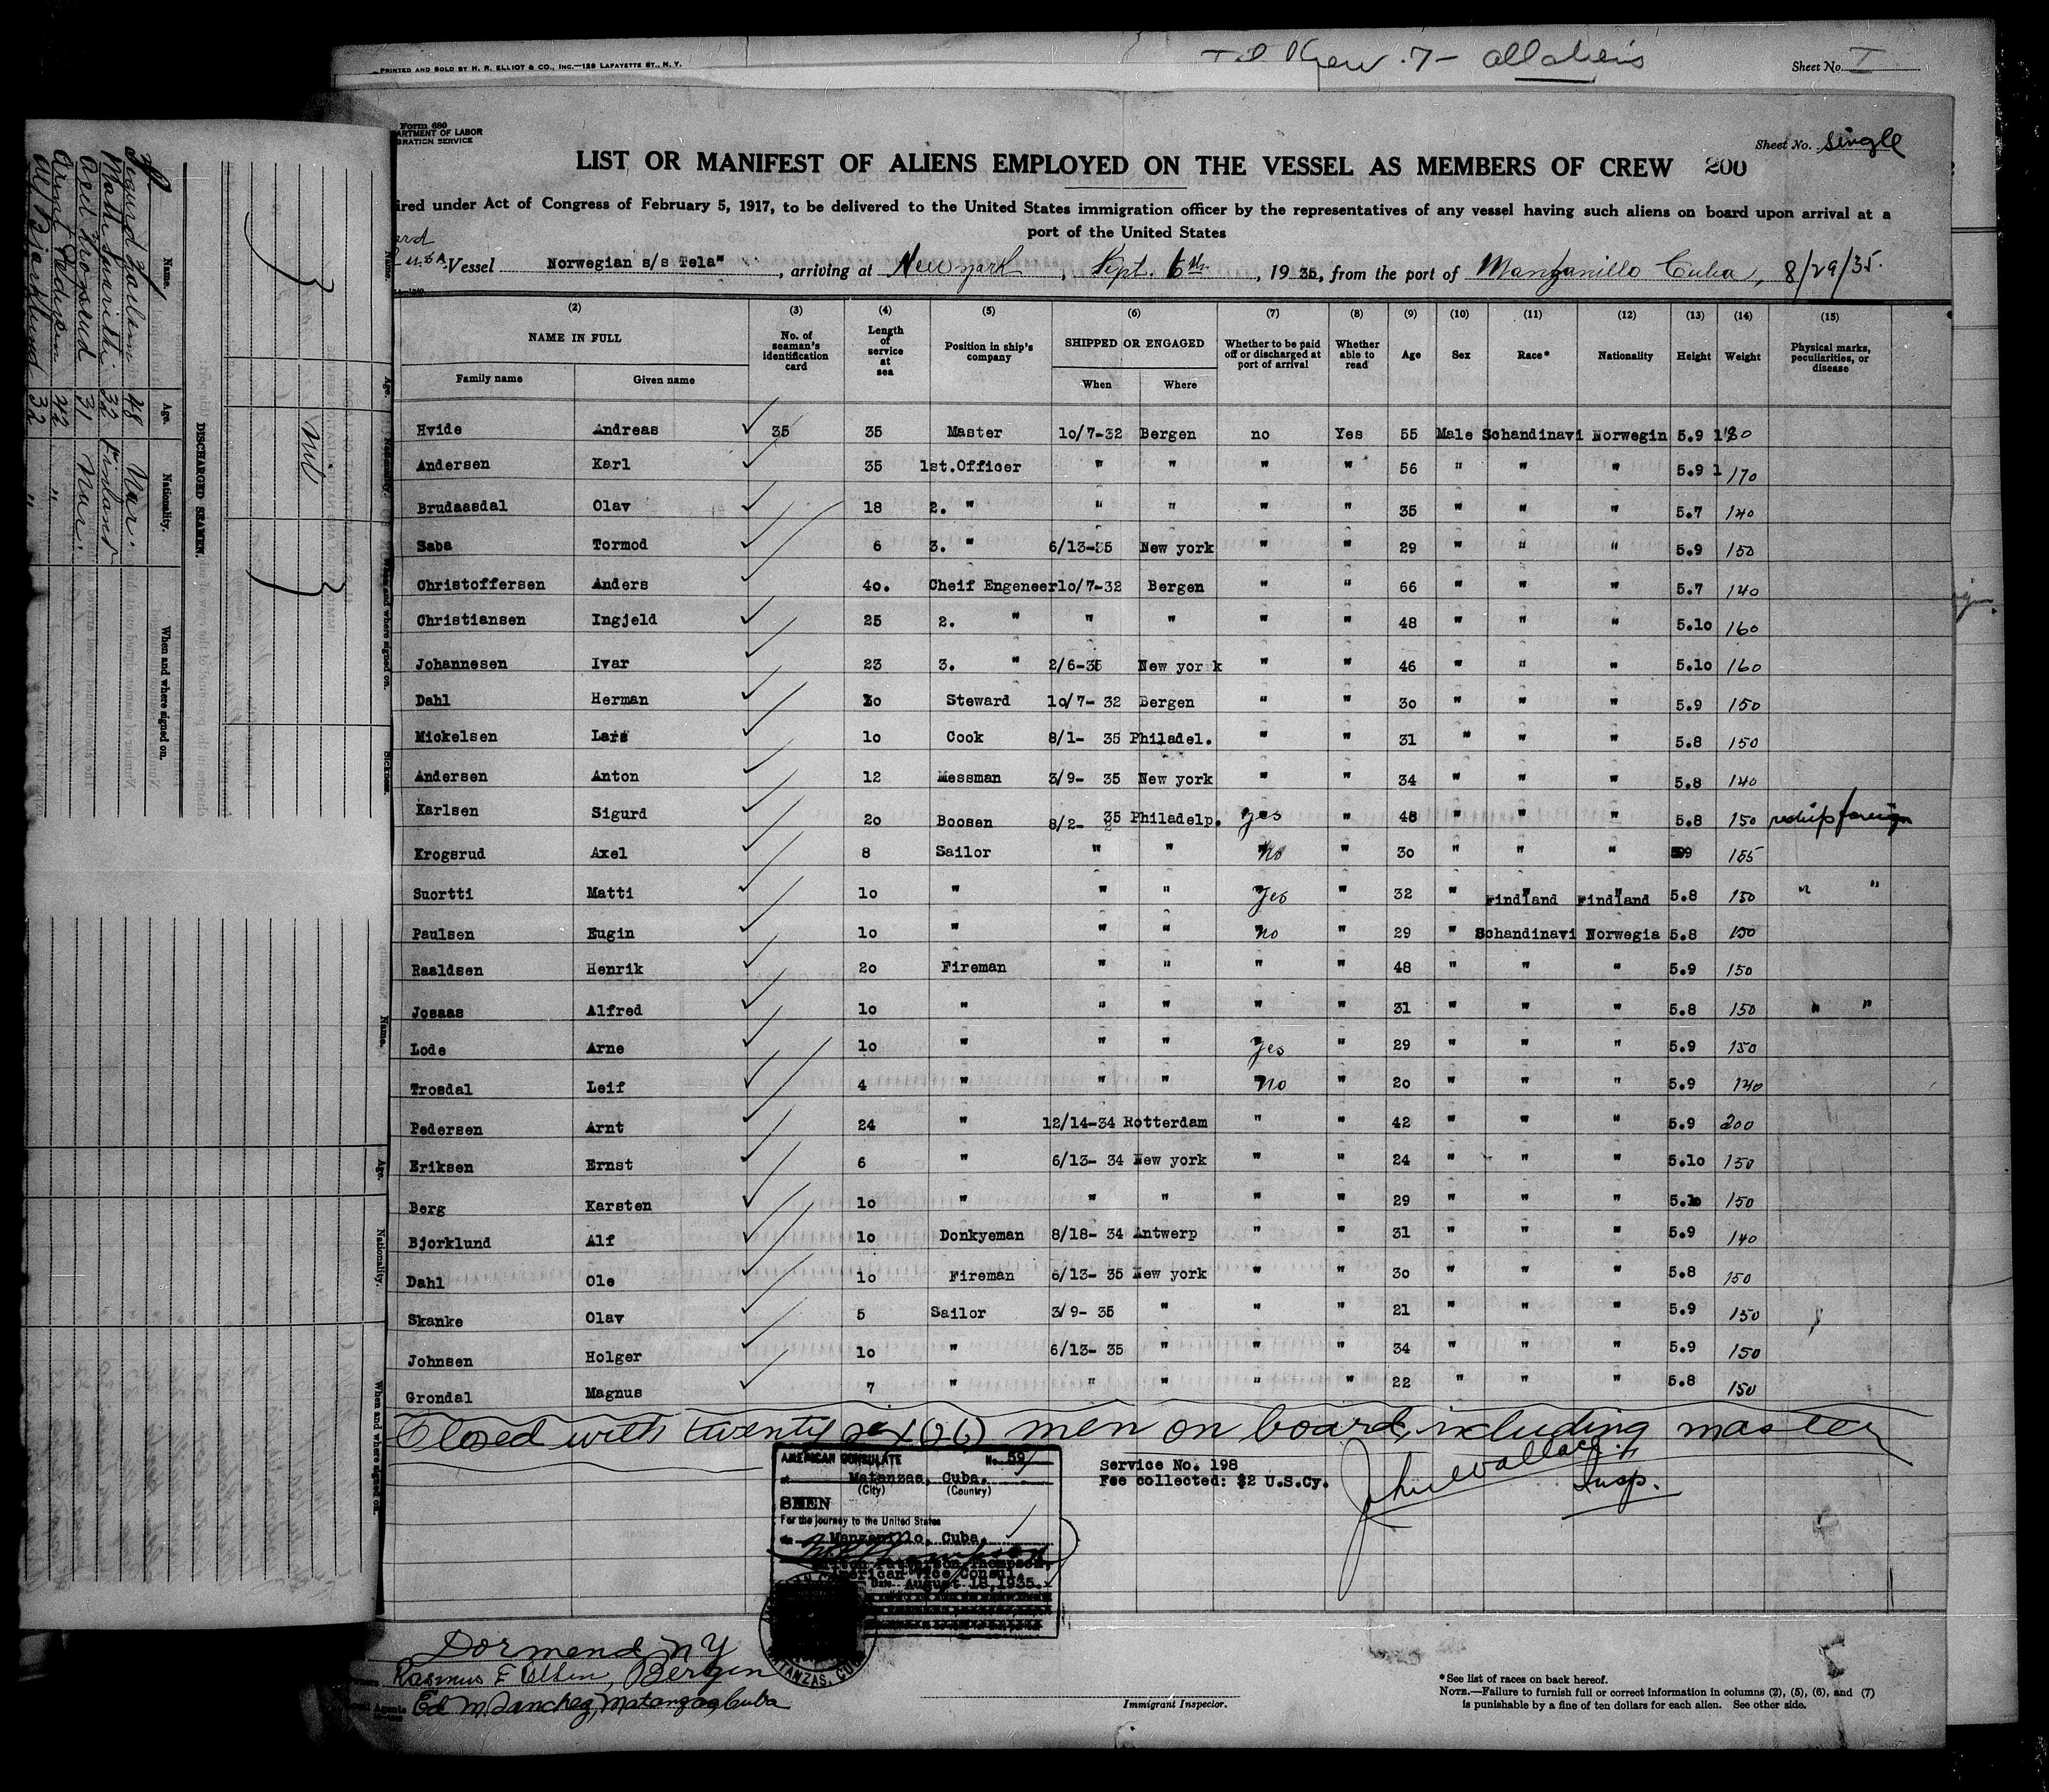 PRINTED AND SOLD BY H. R. ELLIOT & CO., INC.—129 LAFAYETTE ST., N. Y.
Sheet No. I
Form 680
ARTMENT OF LABOR
GRATION SERVICE
Sheet No. single
LIST OR MANIFEST OF ALIENS EMPLOYED ON THE VESSEL AS MEMBERS OF CREW 200
ired under Act of Congress of February 5, 1917, to be delivered to the United States immigration officer by the representatives of any vessel having such aliens on board upon arrival at a
port of the United States
Vessel Norwegian s/s Tela", arriving at New york, Sept. 6th, 1935, from the port of Manzanillo Cuba, 8/29/35.
(2) (3) (4) (5) (6) (7) (8) (9) (10) (11) (12) (13) (14) (15)
NAME IN FULL No. of seaman's identification card Length of service at sea Position in ship's company SHIPPED OR ENGAGED Whether to be paid off or discharged at port of arrival Whether able to read Age Sex Race* Nationality Height Weight Physical marks, peculiarities, or disease
Family name Given name When Where
Hvide Andreas 35 35 Master 10/7-32 Bergen no Yes 55 Male Schandinavi Norwegin 5.9 180
Andersen Karl 35 1st.Officer " " " " 56 " " " 5.9 170
Brudaasdal Olav 18 2. " " " " " 35 " " " 5.7 140
Saba Tormod 6 3. " 6/13-35 New york " " 29 " " " 5.9 150
Christoffersen Anders 40. Cheif Engeneer 10/7-32 Bergen " " 66 " " " 5.7 140
Christiansen Ingjeld 25 2. " " " " " 48 " " " 5.10 160
Johannesen Ivar 23 3. " 2/6-35 New york " " 46 " " " 5.10 160
Dahl Herman 10 Steward 10/7- 32 Bergen " " 30 " " " 5.9 150
Mickelsen Lars 10 Cook 8/1- 35 Philadel. " " 31 " " " 5.8 150
Andersen Anton 12 Messman 3/9- 35 New york " " 34 " " " 5.8 140
Karlsen Sigurd 20 Boosen 8/2- 35 Philadelp. yes " 48 " " " 5.8 150 reship foreign
Krogsrud Axel 8 Sailor " " No " 30 " " " 5.9 155
Suortti Matti 10 " " " Yes " 32 " Findland Findland 5.8 150 " "
Paulsen Eugin 10 " " " No " 29 " Schandinavi Norwegia 5.8 150
Raaldsen Henrik 20 Fireman " " " " 48 " " " 5.9 150
Josaas Alfred 10 " " " " " 31 " " " 5.8 150 " "
Lode Arne 10 " " " Yes " 29 " " " 5.9 150
Trosdal Leif 4 " " " No " 20 " " " 5.9 140
Pedersen Arnt 24 " 12/14-34 Rotterdam " " 42 " " " 5.9 200
Eriksen Ernst 6 " 6/13- 34 New york " " 24 " " " 5.10 150
Berg Karsten 10 " " " " " 29 " " " 5.10 150
Bjorklund Alf 10 Donkyeman 8/18- 34 Antwerp " " 31 " " " 5.9 140
Dahl Ole 10 Fireman 6/13- 35 New york " " 30 " " " 5.8 150
Skanke Olav 5 Sailor 3/9- 35 " " " 21 " " " 5.9 150
Johnsen Holger 10 " 6/13- 35 " " " 34 " " " 5.9 150
Grondal Magnus 7 " " " " " 22 " " " 5.8 150
Closed with twenty six (26) men on board, including master
John Wallace
Insp.
AMERICAN CONSULATE No. 59
at Matanzas, Cuba.
(City) (Country)
SEEN
For the journey to the United States
via Manzanillo, Cuba.
Patterson Thompson,
American Vice Consul.
Date August 18, 1935.
MATANZAS, CUBA
Service No. 198
Fee collected: $2 U.S.Cy.
Dormend NY
Rasmus F Olsen, Bergen
Ed M. Sanchez, Matanzas, Cuba
Immigrant Inspector.
*See list of races on back hereof.
NOTE.—Failure to furnish full or correct information in columns (2), (5), (6), and (7)
is punishable by a fine of ten dollars for each alien. See other side.
DISCHARGED SEAMEN.
Name. Age. Nationality. When and where signed on.
Sigurd Karlsen 48 Nor.
Matti Suoritti 32 Finland
Axel Krogsrud 31 Nor.
Arnt Pedersen 42 "
Alf Bjorklund 32 "
Name. Age. Nationality. When and where signed on. Sickness.
Nil
Name. Age. Nationality. When and where signed on.